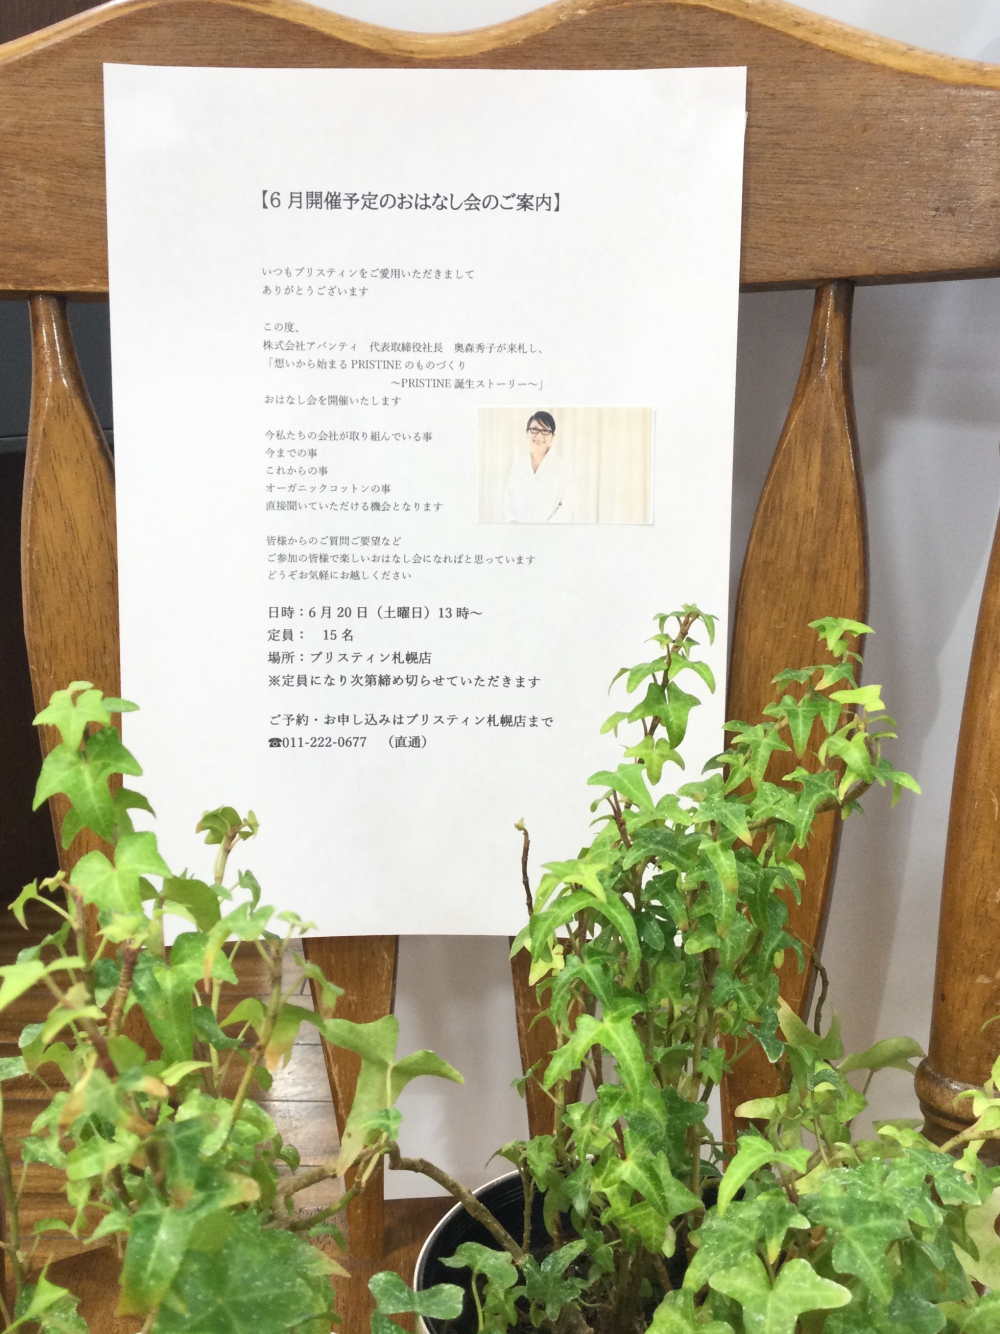 【6月開催予定のおはなし会のご案内】
いつもプリスティンをご愛用いただきまして
ありがとうございます
この度、
株式会社アバンティ　代表取締役社長　奥森秀子が来札し、
「想いから始まる PRISTINE のものづくり
～PRISTINE 誕生ストーリー～」
おはなし会を開催いたします
今私たちの会社が取り組んでいる事
今までの事
これからの事
オーガニックコットンの事
直接聞いていただける機会となります
皆様からのご質問ご要望など
ご参加の皆様で楽しいおはなし会になればと思っています
どうぞお気軽にお越しください
日時：6月20日（土曜日）13時～
定員：　15名
場所：プリスティン札幌店
※定員になり次第締め切らせていただきます
ご予約・お申し込みはプリスティン札幌店まで
☎011-222-0677　（直通）